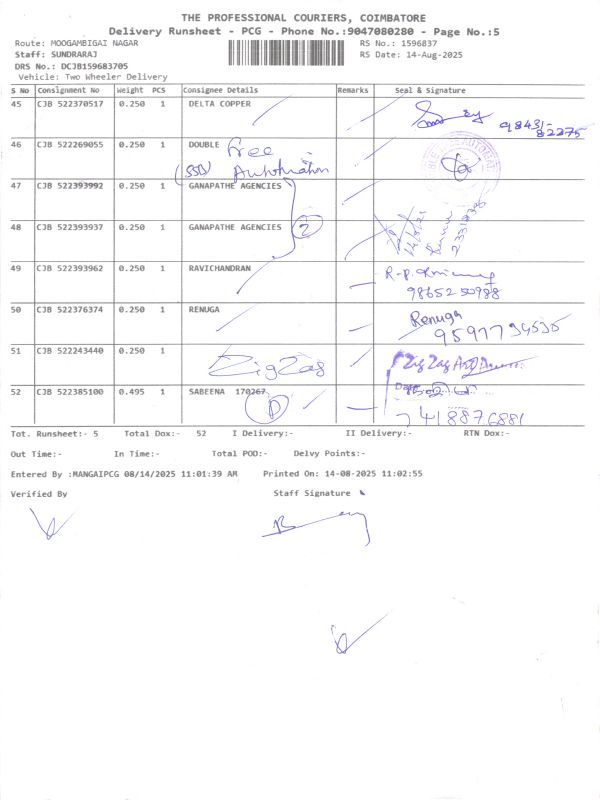 THE PROFESSIONAL COURIERS, COIMBATORE
Delivery Runsheet - PCG - Phone No.:9047080280 - Page No.:5
Route: MOOGAMBIGAI NAGAR RS No.: 1596837
Staff: SUNDRARAJ RS Date: 14-Aug-2025
DRS No.: DCJB159683705
Vehicle: Two Wheeler Delivery
S No Consignment No Weight PCS Consignee Details Remarks Seal & Signature
45 CJB 522370517 0.250 1 DELTA COPPER
98431-
82275
46 CJB 522269055 0.250 1 DOUBLE Free
(SSD) Automation
47 CJB 522393992 0.250 1 GANAPATHE AGENCIES
48 CJB 522393937 0.250 1 GANAPATHE AGENCIES 2
49 CJB 522393962 0.250 1 RAVICHANDRAN
9865250988
50 CJB 522376374 0.250 1 RENUGA Renuga
51 CJB 522243440 0.250 1 ZigZag Zig Zag
52 CJB 522385100 0.495 1 SABEENA 170267 P
7418876881
Tot. Runsheet:- 5 Total Dox:- 52 I Delivery:- II Delivery:- RTN Dox:-
Out Time:- In Time:- Total POD:- Delvy Points:-
Entered By :MANGAIPCG 08/14/2025 11:01:39 AM Printed On: 14-08-2025 11:02:55
Verified By Staff Signature